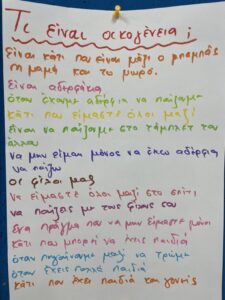 Τι είναι οικογένεια ;
Είναι κάτι που είναι μάζι ο μπαμπάς
η μαμά και το μωρό.
Είναι αδερφάκια
όταν έχουμε αδέρφια να παίζουμε
κάτι που είμαστε όλοι μαζί
είναι να παίζουμε στο τάμπλετ του
άλλου
να μην είμαι μόνος να έχω αδέρφια
να παίζω
οι φίλοι μας
να είμαστε όλοι μαζί στο σπίτι
να παίζεις με τους φίλους σου
ένα πράγμα που να μην είμαστε μόνοι
κάτι που μπορεί να έχεις παιδιά
όταν πηγαίνουμε μαζί να τρώμε
όταν έχεις πολλά παιδιά
κάτι που έχει παιδιά και γονείς